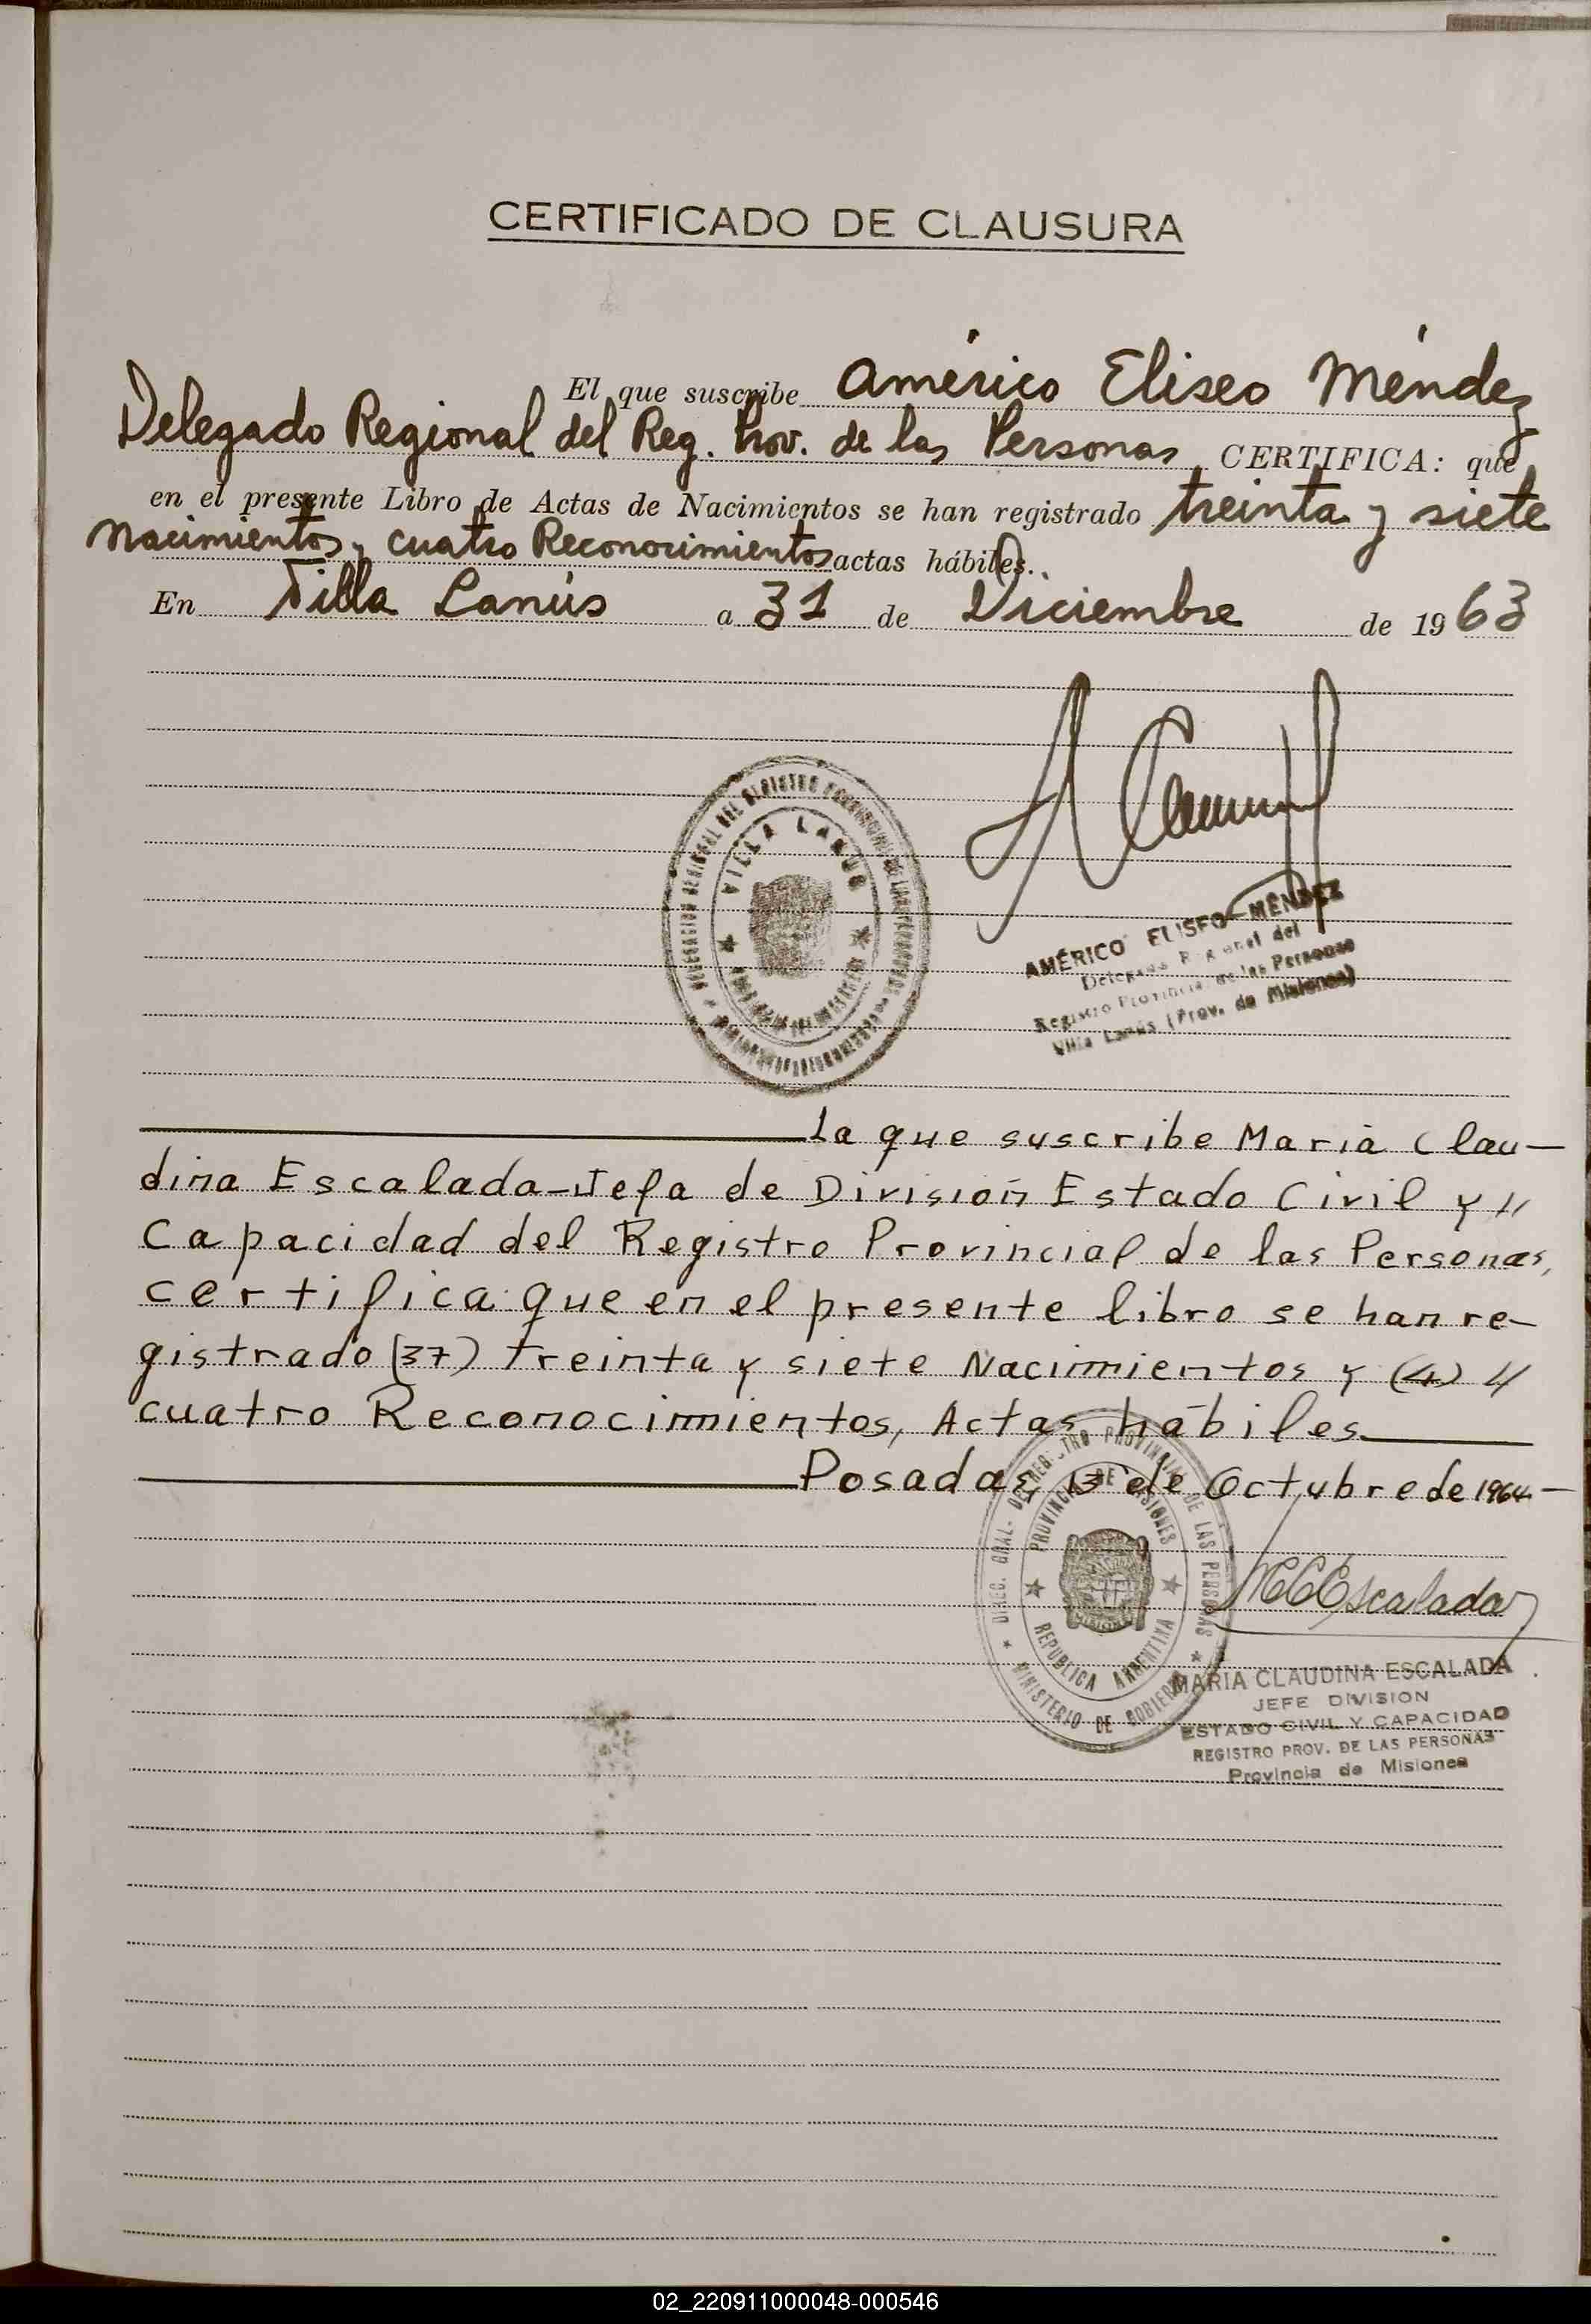 CERTIFICADO DE CLAUSURA
El que suscribe Américo Eliseo Méndez
Delegado Regional del Reg. Prov. de las Personas CERTIFICA: que
en el presente Libro de Actas de Nacimientos se han registrado treinta y siete
Nacimientos y cuatro Reconocimientos actas hábiles.
En Villa Lanús a 31 de Diciembre de 1963
VILLA LANUS
AMÉRICO ELISEO MÉNDEZ
Delegado Regional del
Registro Provincial de las Personas
Villa Lanús (Prov. de Misiones)
La que suscribe Maria Clau-
dina Escalada-Jefa de División Estado Civil y //
Capacidad del Registro Provincial de las Personas,
certifica: que en el presente libro se han re-
gistrado (37) treinta y siete Nacimientos y (4) //
cuatro Reconocimientos, Actas hábiles
Posadas, 13 de Octubre de 1964-
DIREC. GRAL. DEL REGISTRO PROVINCIAL DE LAS PERSONAS
PROVINCIA DE MISIONES
REPUBLICA ARGENTINA
MINISTERIO DE GOBIERNO
MCEscalada
MARIA CLAUDINA ESCALADA
JEFE DIVISION
ESTADO CIVIL Y CAPACIDAD
REGISTRO PROV. DE LAS PERSONAS
Provincia de Misiones
02_220911000048-000546